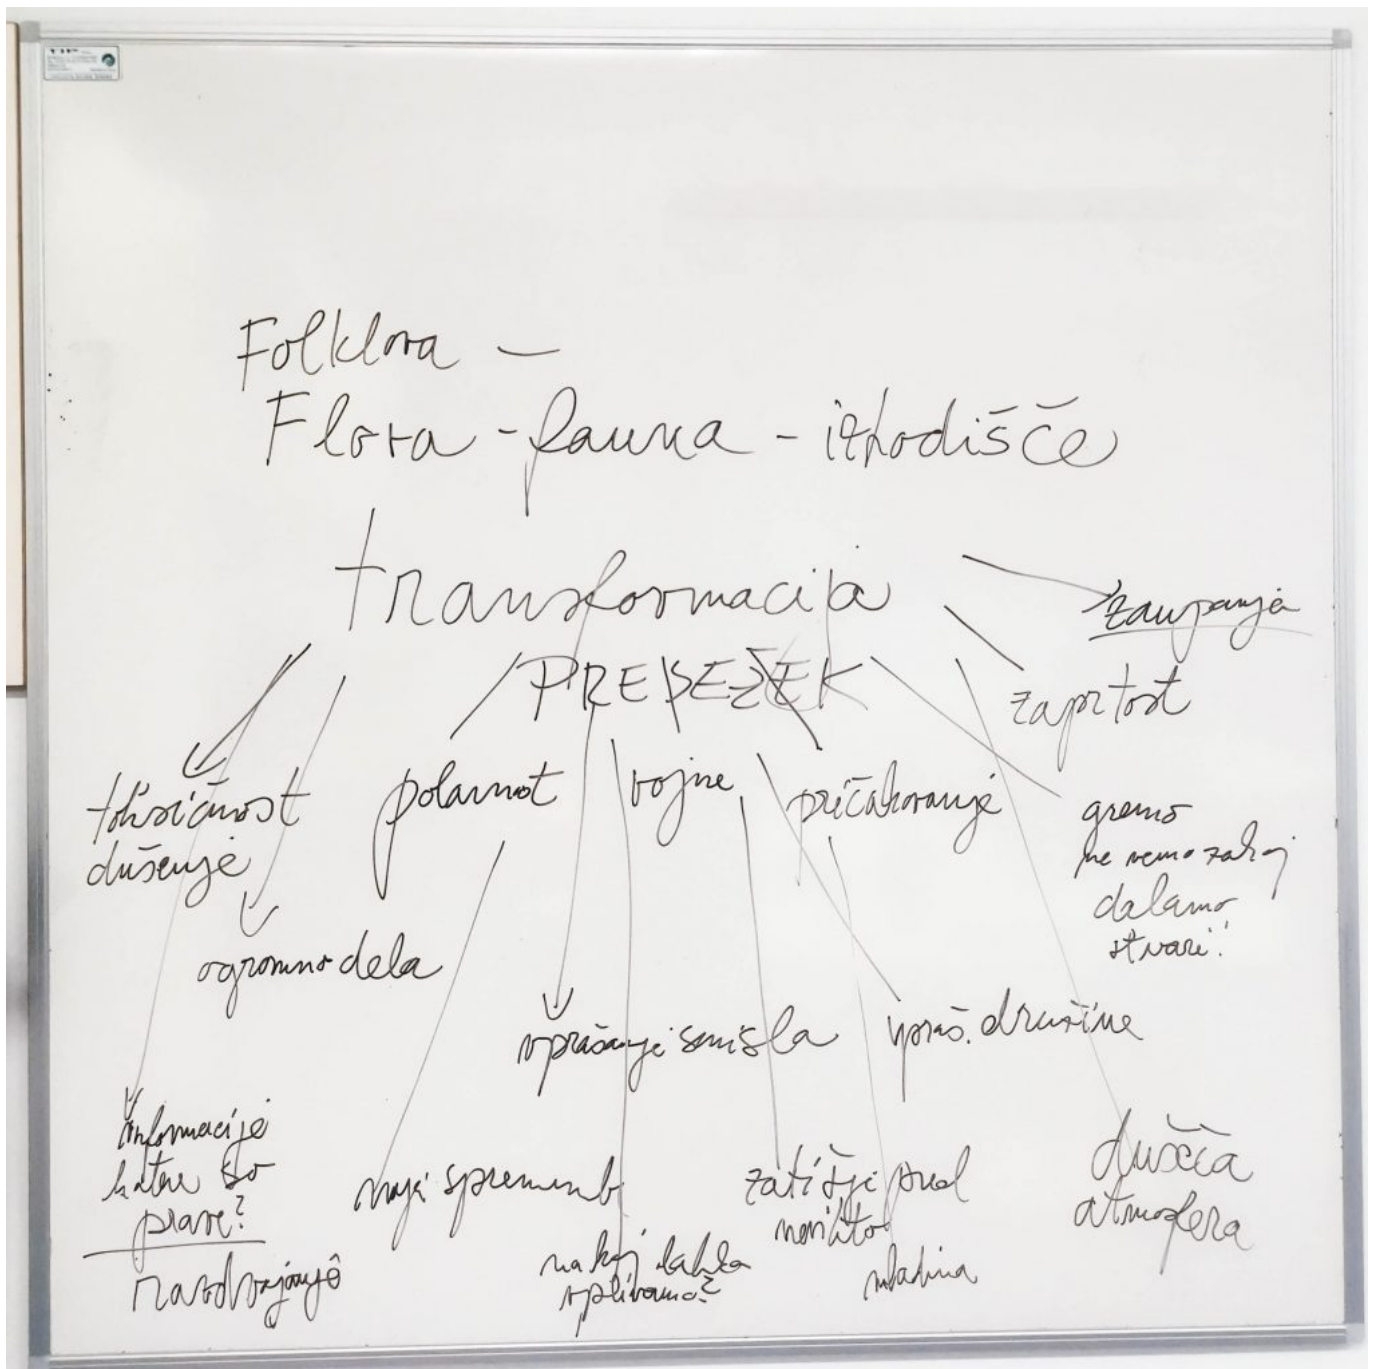 Folklora -
Flora - fauna - izhodišče
transformacija
PRESEŽEK
zaupanje
zaprtost
toksičnost
dušenje
polarnost
vojne
pričakovanje
gremo
ne vemo zakaj
delamo
stvari!
ogromno dela
vprašanje smisla
vpraš. družine
informacije
katere so
prave?
razdvajanje
sprememb
na kaj lahko
vplivamo?
zatišje pred
nevihto
mladina
dušeča
atmosfera